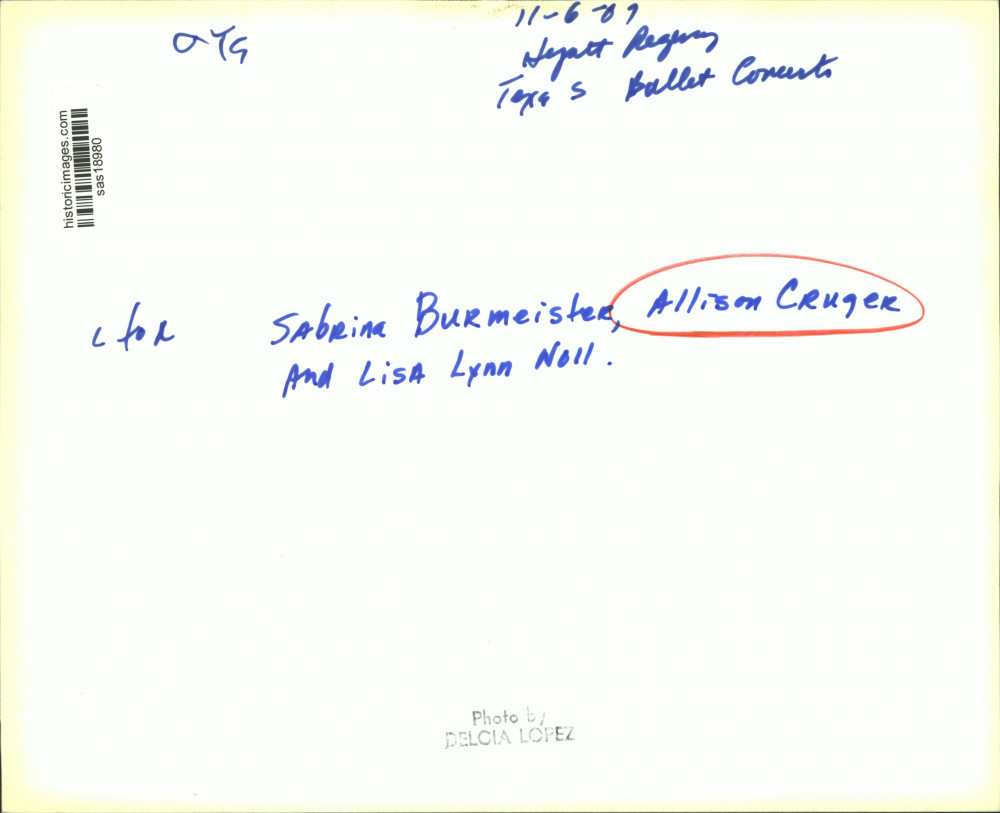 OYG
11-6-89
Hyatt Regency
Texas Ballet Concerto
historicimages.com
sas18980
L foR Sabrina Burmeister, Allison Cruger
And Lisa Lynn Noll.
Photo by
DELCIA LOPEZ